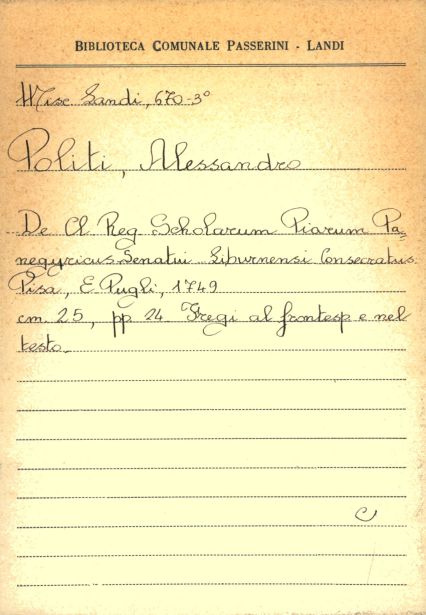 BIBLIOTECA COMUNALE PASSERINI - LANDI
Misc Landi, 670-3°
Politi, Alessandro
De Cl Reg Scholarum Piarum Pa=
negyricus Senatui Liburnensi Consecratus.
Pisa, E Pugli, 1749
cm 25, pp 24 Fregi al frontesp e nel
testo.
C